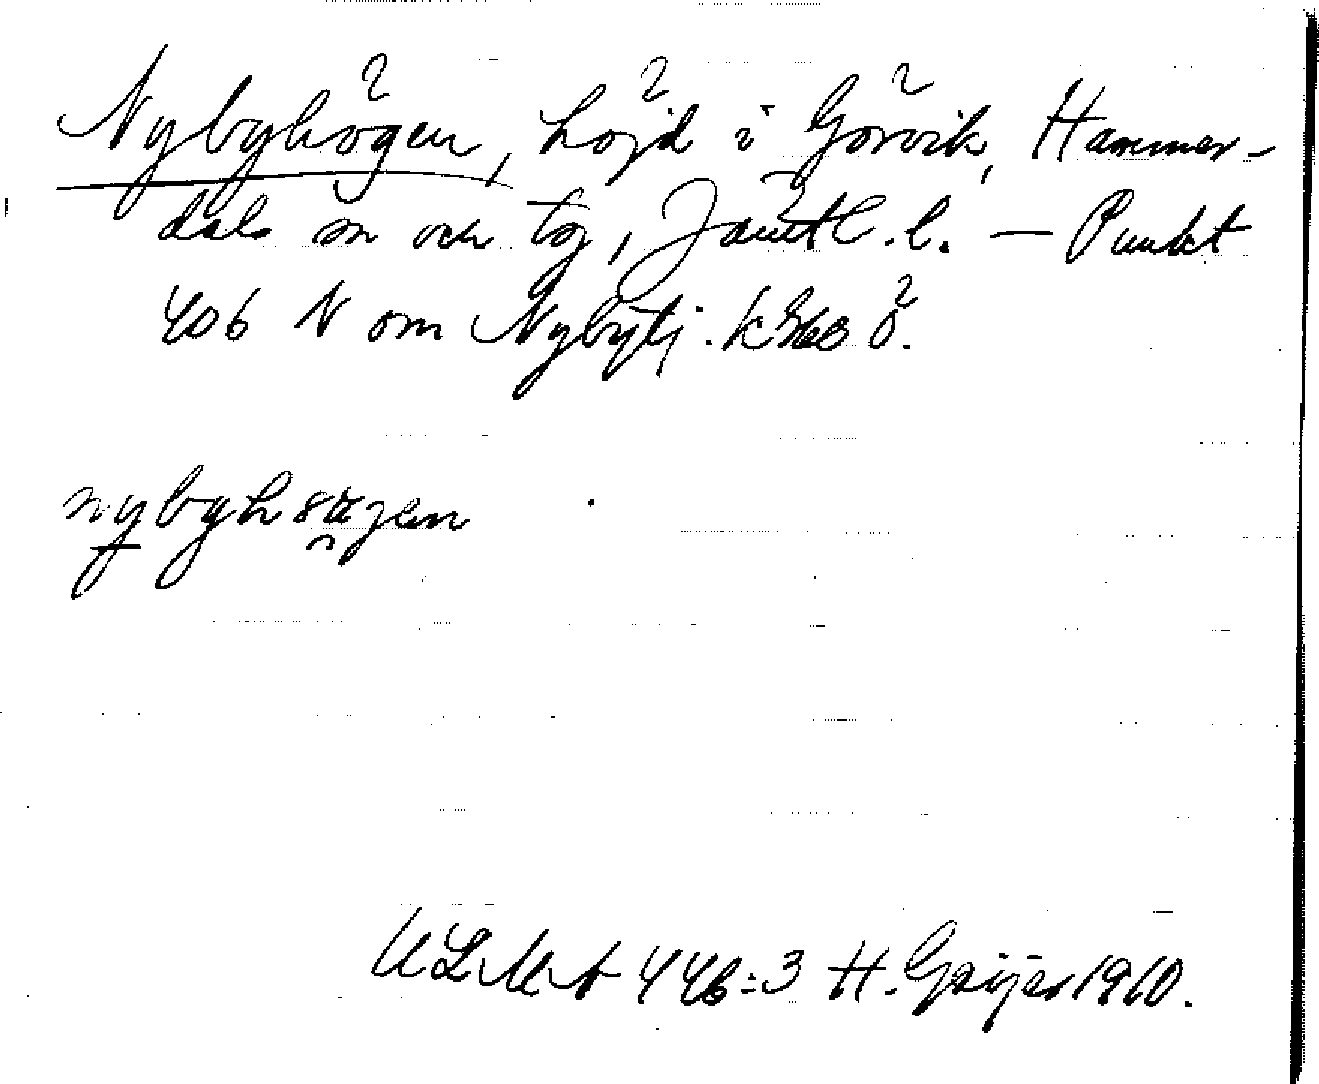 Nybyhögen, höjd i Görvik, Hammer-
dals sn och tg, Jämtl. l. — Punkt
406 N om Nybytj. k Ö.
nybyh
ULMA 446:3 H. Geijer 1910.